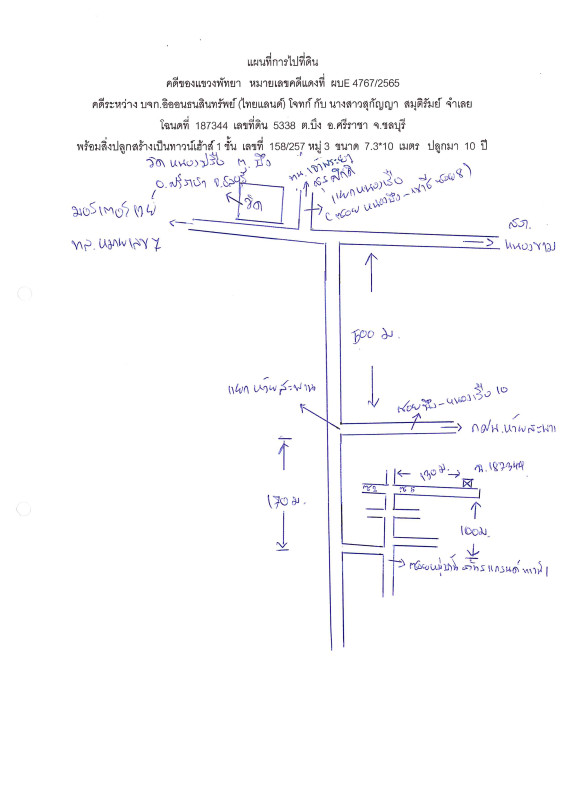 แผนที่การไปที่ดิน
คดีของแขวงพัทยา หมายเลขคดีแดงที่ ผบE 4767/2565
คดีระหว่าง บจก.อิออนธนสินทรัพย์ (ไทยแลนด์) โจทก์ กับ นางสาวสุกัญญา สมุติรัมย์ จำเลย
โฉนดที่ 187344 เลขที่ดิน 5338 ต.บึง อ.ศรีราชา จ.ชลบุรี
พร้อมสิ่งปลูกสร้างเป็นทาวน์เฮ้าส์ 1 ชั้น เลขที่ 158/257 หมู่ 3 ขนาด 7.3*10 เมตร ปลูกมา 10 ปี
วัดหนองปรือ ต. บึง
อ.ศรีราชา จ.ชลบุรี
วัด
แยกหนองปรือ
มอร์เตอร์เวย์
ทล.หมายเลข 7
หนองขาม
500 ม.
แยกห้วยสะพาน
ซอยบึง-หนองปรือ 10
กศน.ห้วยสะพาน
170 ม.
130 ม.
ฉ.187344
ซ.5
ซ.6
100 ม.